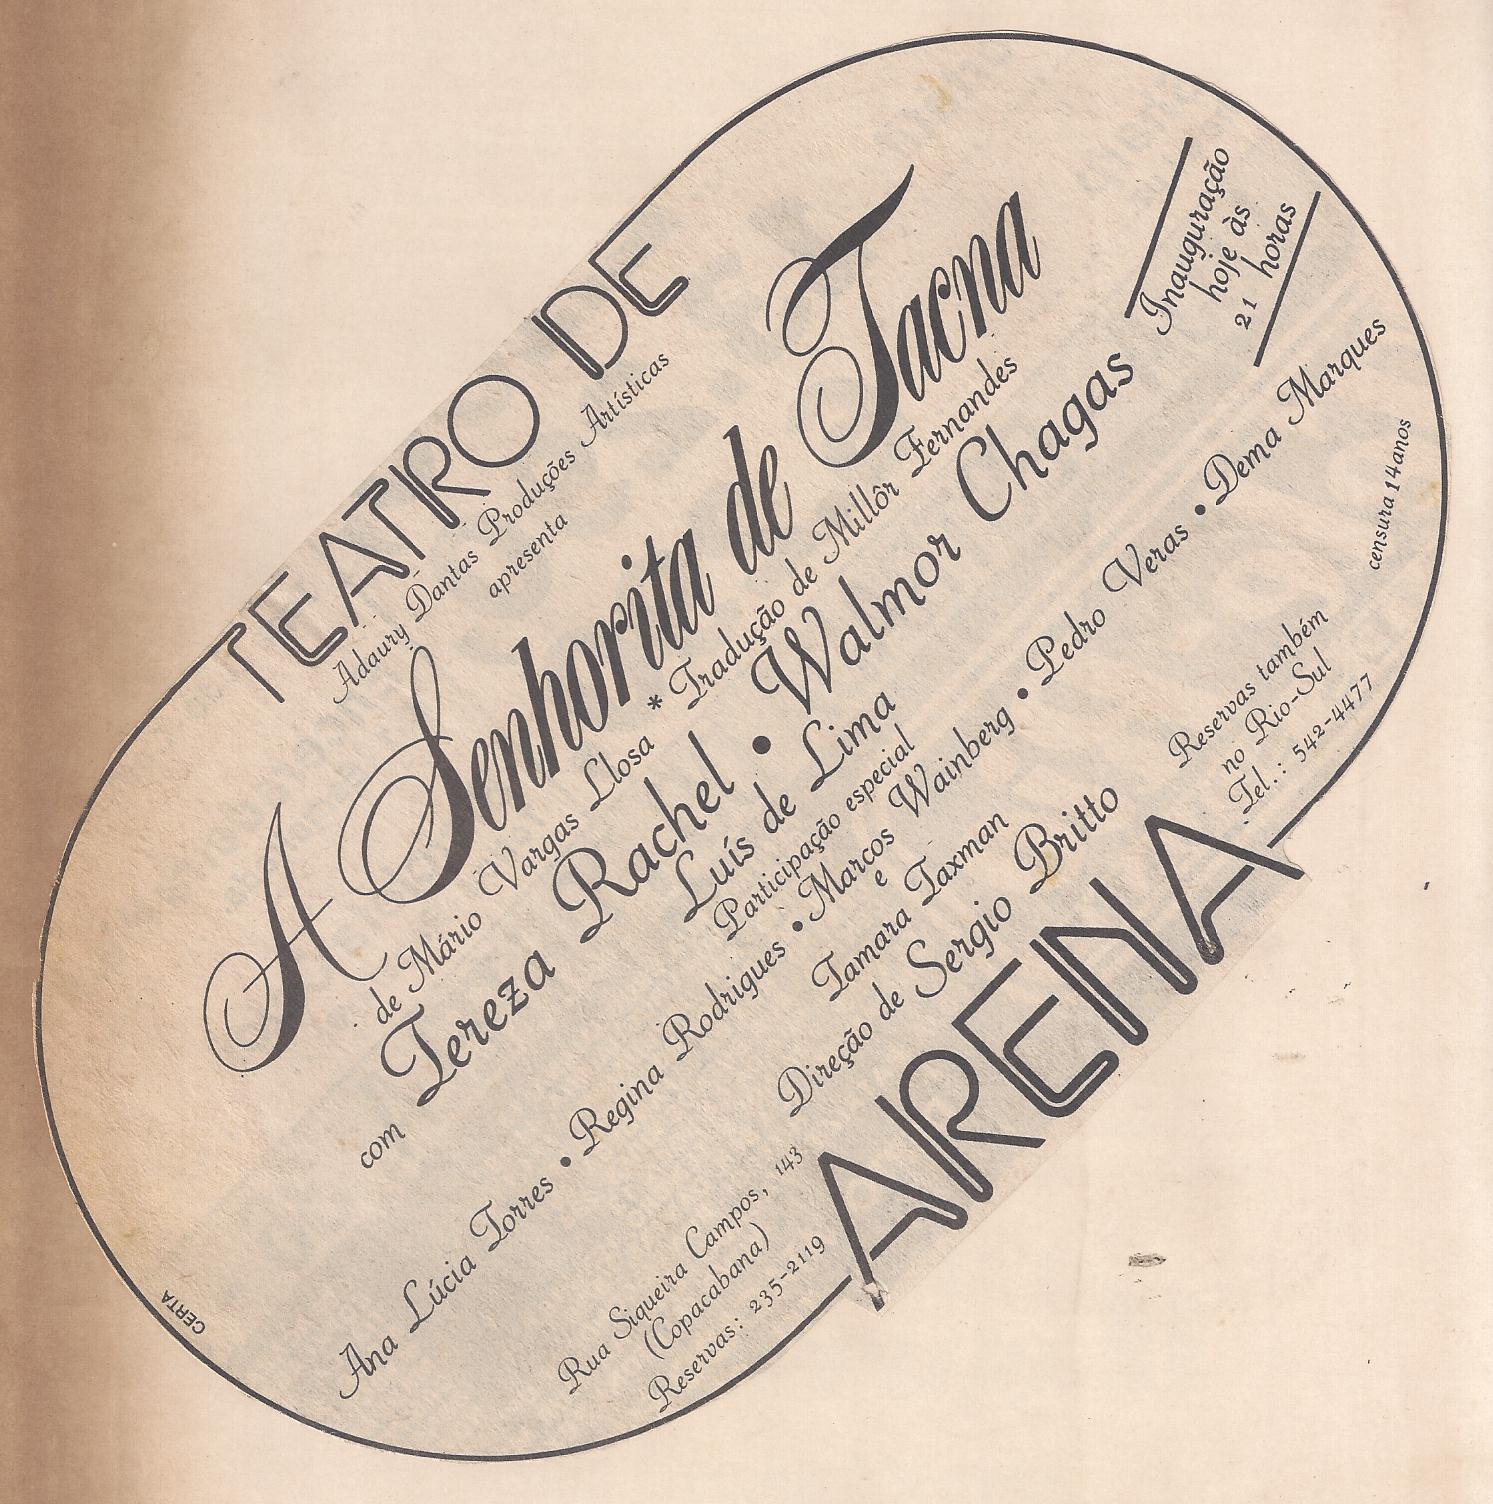 TEATRO DE
Adaury Dantas Produções Artísticas
apresenta
A Senhorita de Tacna
de Mário Vargas Llosa * Tradução de Millôr Fernandes
com Tereza Rachel • Walmor Chagas
Inauguração
hoje às
21 horas
Luís de Lima
Participação especial
Ana Lúcia Torres • Regina Rodrigues • Marcos Wainberg • Pedro Veras • Dema Marques
e
Tamara Taxman
Direção de Sergio Britto
censura 14 anos
Rua Siqueira Campos, 143
(Copacabana)
Reservas: 235-2119
Reservas também
no Rio-Sul
Tel.: 542-4477
ARENA
CERTA